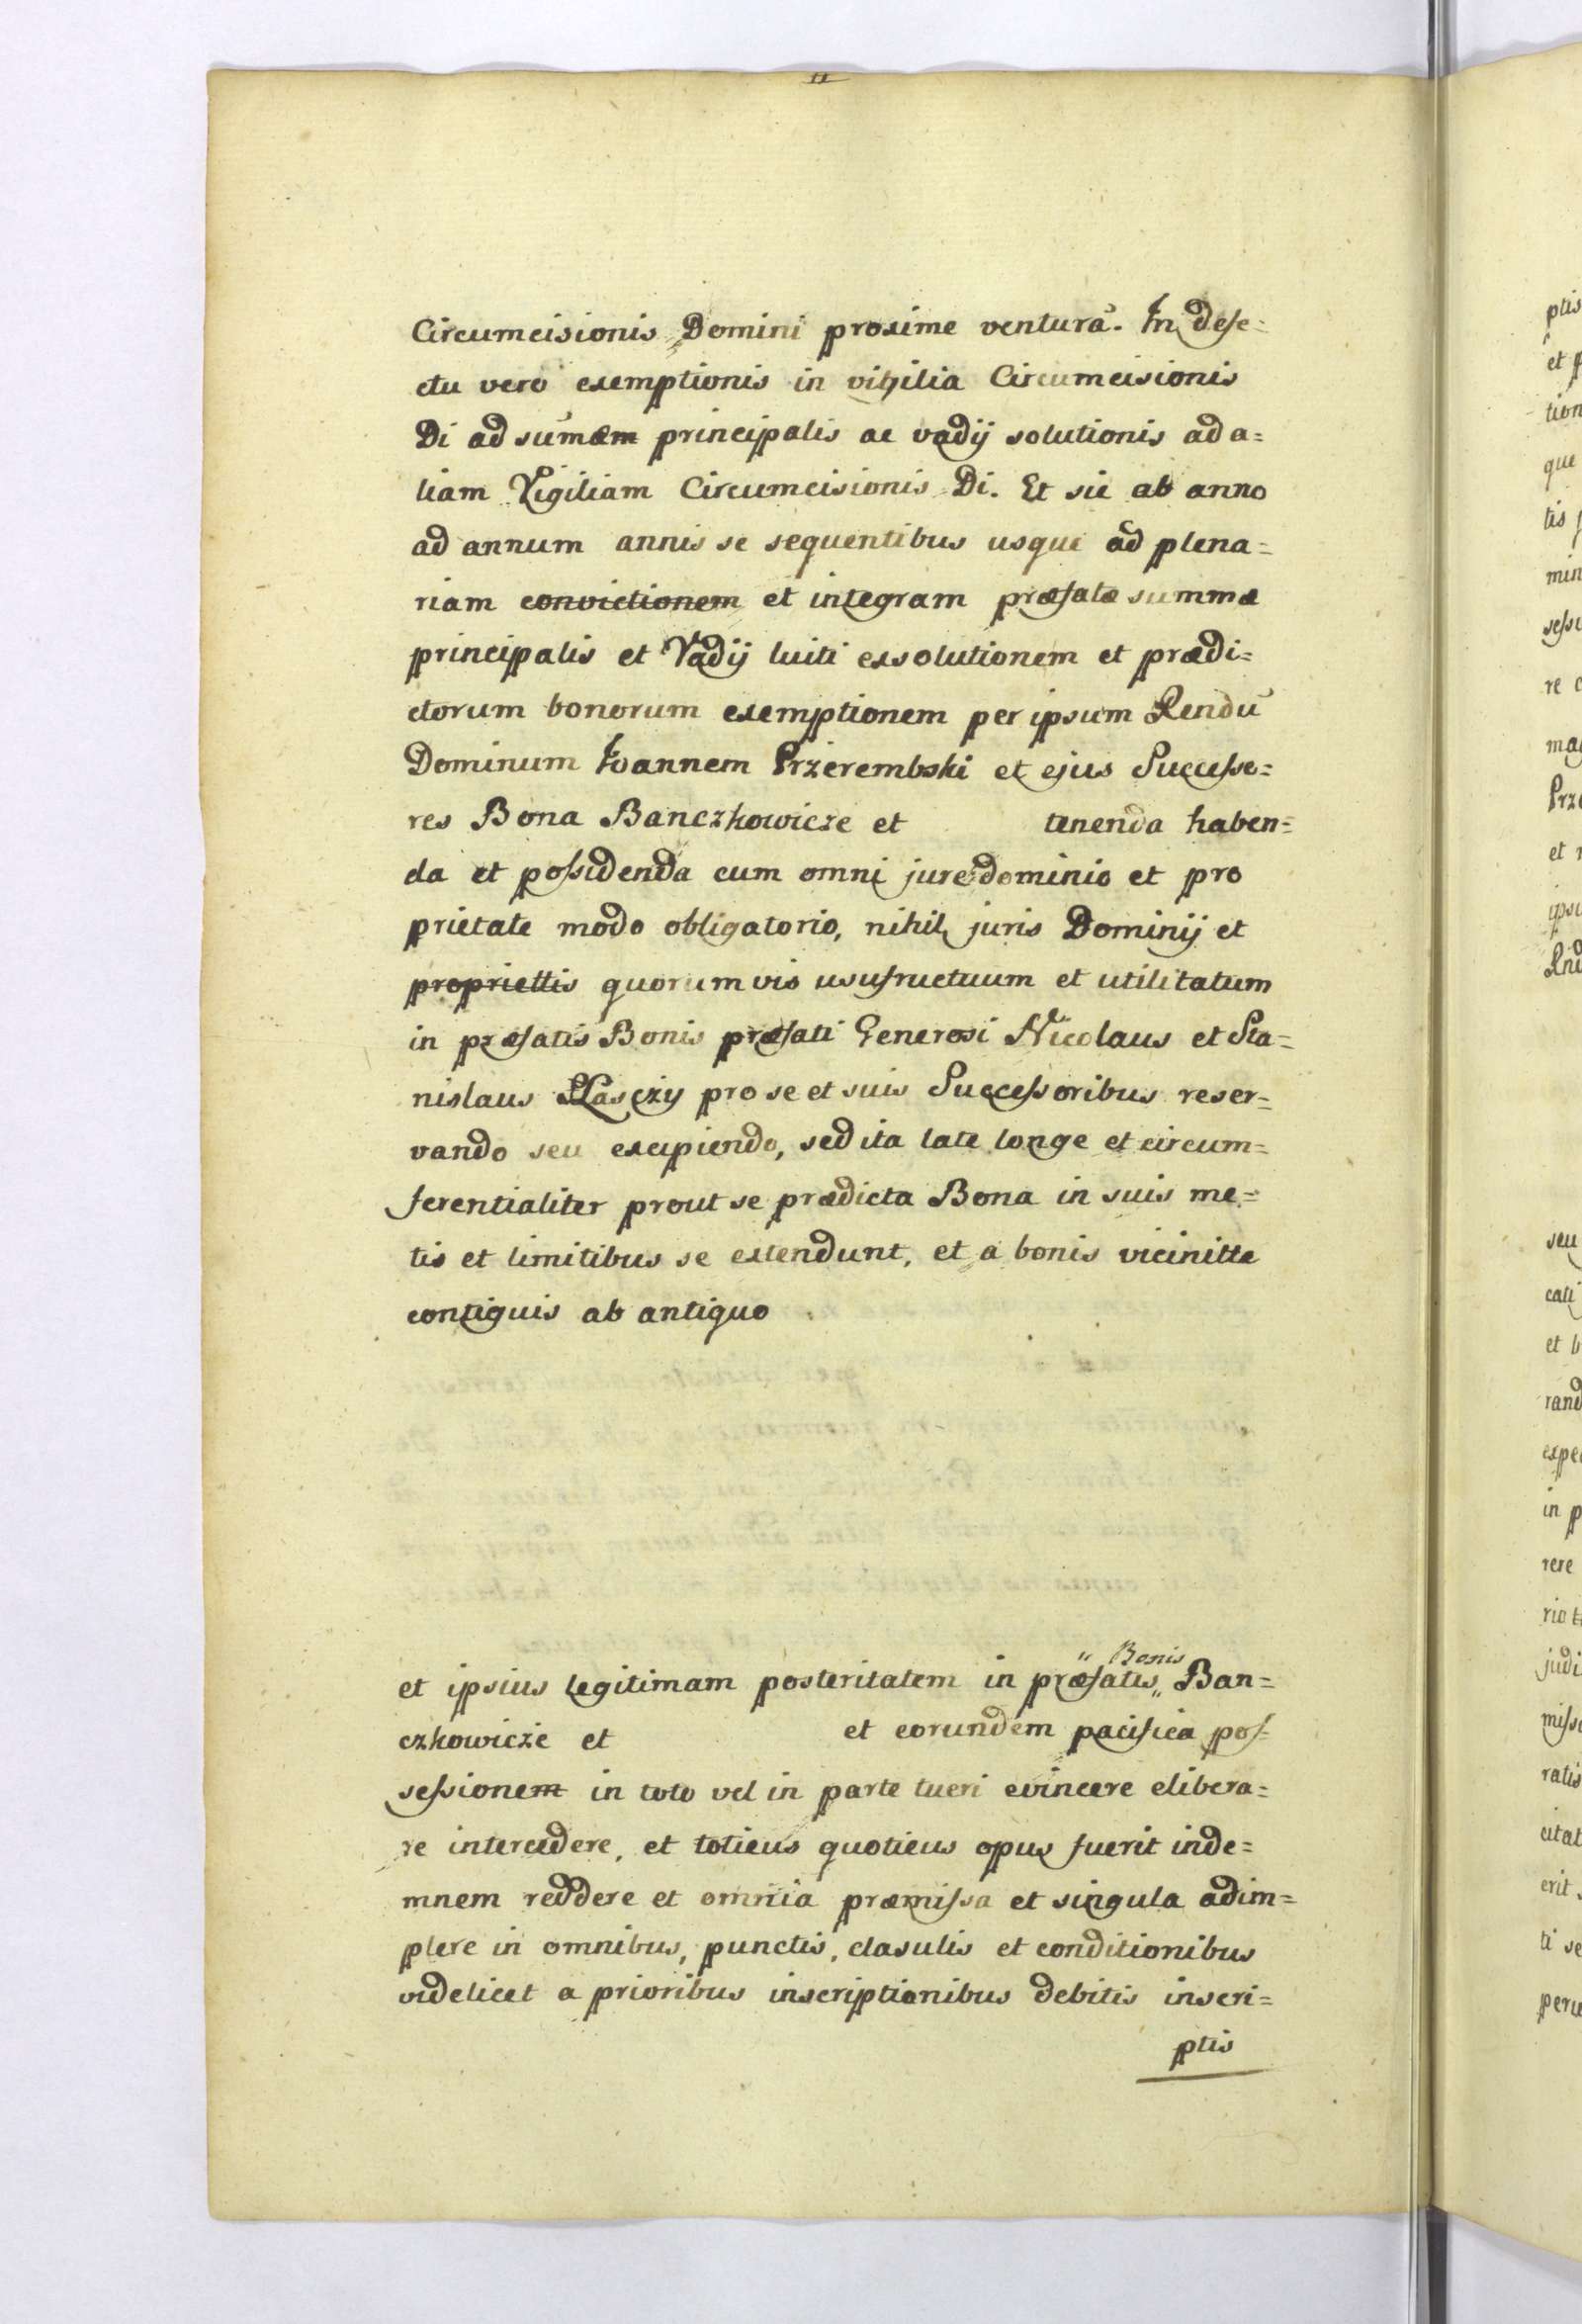 Circumcisionis Domini proxime ventura. In defe=
ctu vero exemptionis in vigilia Circumcisionis
Di ad sumam principalis ac vadij solutionis ad a=
liam Vigiliam Circumcisionis Di. Et sic ab anno
ad annum annis se sequentibus usque ad plena=
riam convictionem et integram præfatæ summæ
principalis et Vadij luiti exsolutionem et prædi=
ctorum bonorum exemptionem per ipsum Rendū
Dominum Joannem Przerembski et ejus Successo=
res Bona Banczkowicze et tenenda haben=
da et possidenda cum omni jure dominio et pro
prietate modo obligatorio, nihil juris Dominij et
propriettis quorumvis usufructuum et utilitatum
in præfatis Bonis præfati Generosi Nicolaus et Sta=
nislaus Lasczy pro se et suis Successoribus reser=
vando seu excipiendo, sed ita late longe et circum=
ferentialiter prout se prædicta Bona in suis me=
tis et limitibus se extendunt, et a bonis vicinitte
contiguis ab antiquo
et ipsius legitimam posteritatem in præfatis „ Bonis „ Ban=
czkowicze et et eorundem pacifica pos=
sessionem in toto vel in parte tueri evincere elibera=
re intercedere, et totieus quotieus opus fuerit inde=
mnem reddere et omnia præmissa et singula adim=
plere in omnibus, punctis, clasulis et conditionibus
videlicet a prioribus inscriptionibus debitis inscri=
ptis
ptis
et p
tion
que
tis
min
sessi
re
mag
Prze
et
ipsu
seu
cati
et b
rand
expe
in p
rere
judi
misse
ratis
citat
erit
ti se
peru